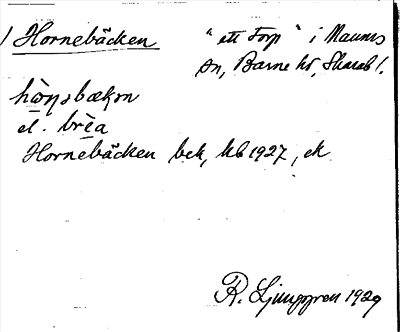 1 Hornebäcken "ett torp" i Maums
sn, Barne hd, Skarab l.
hò̱ŋsbækən
el. brèa
Hornebäcken bek, kb 1927, ek
R. Ljunggren 1929